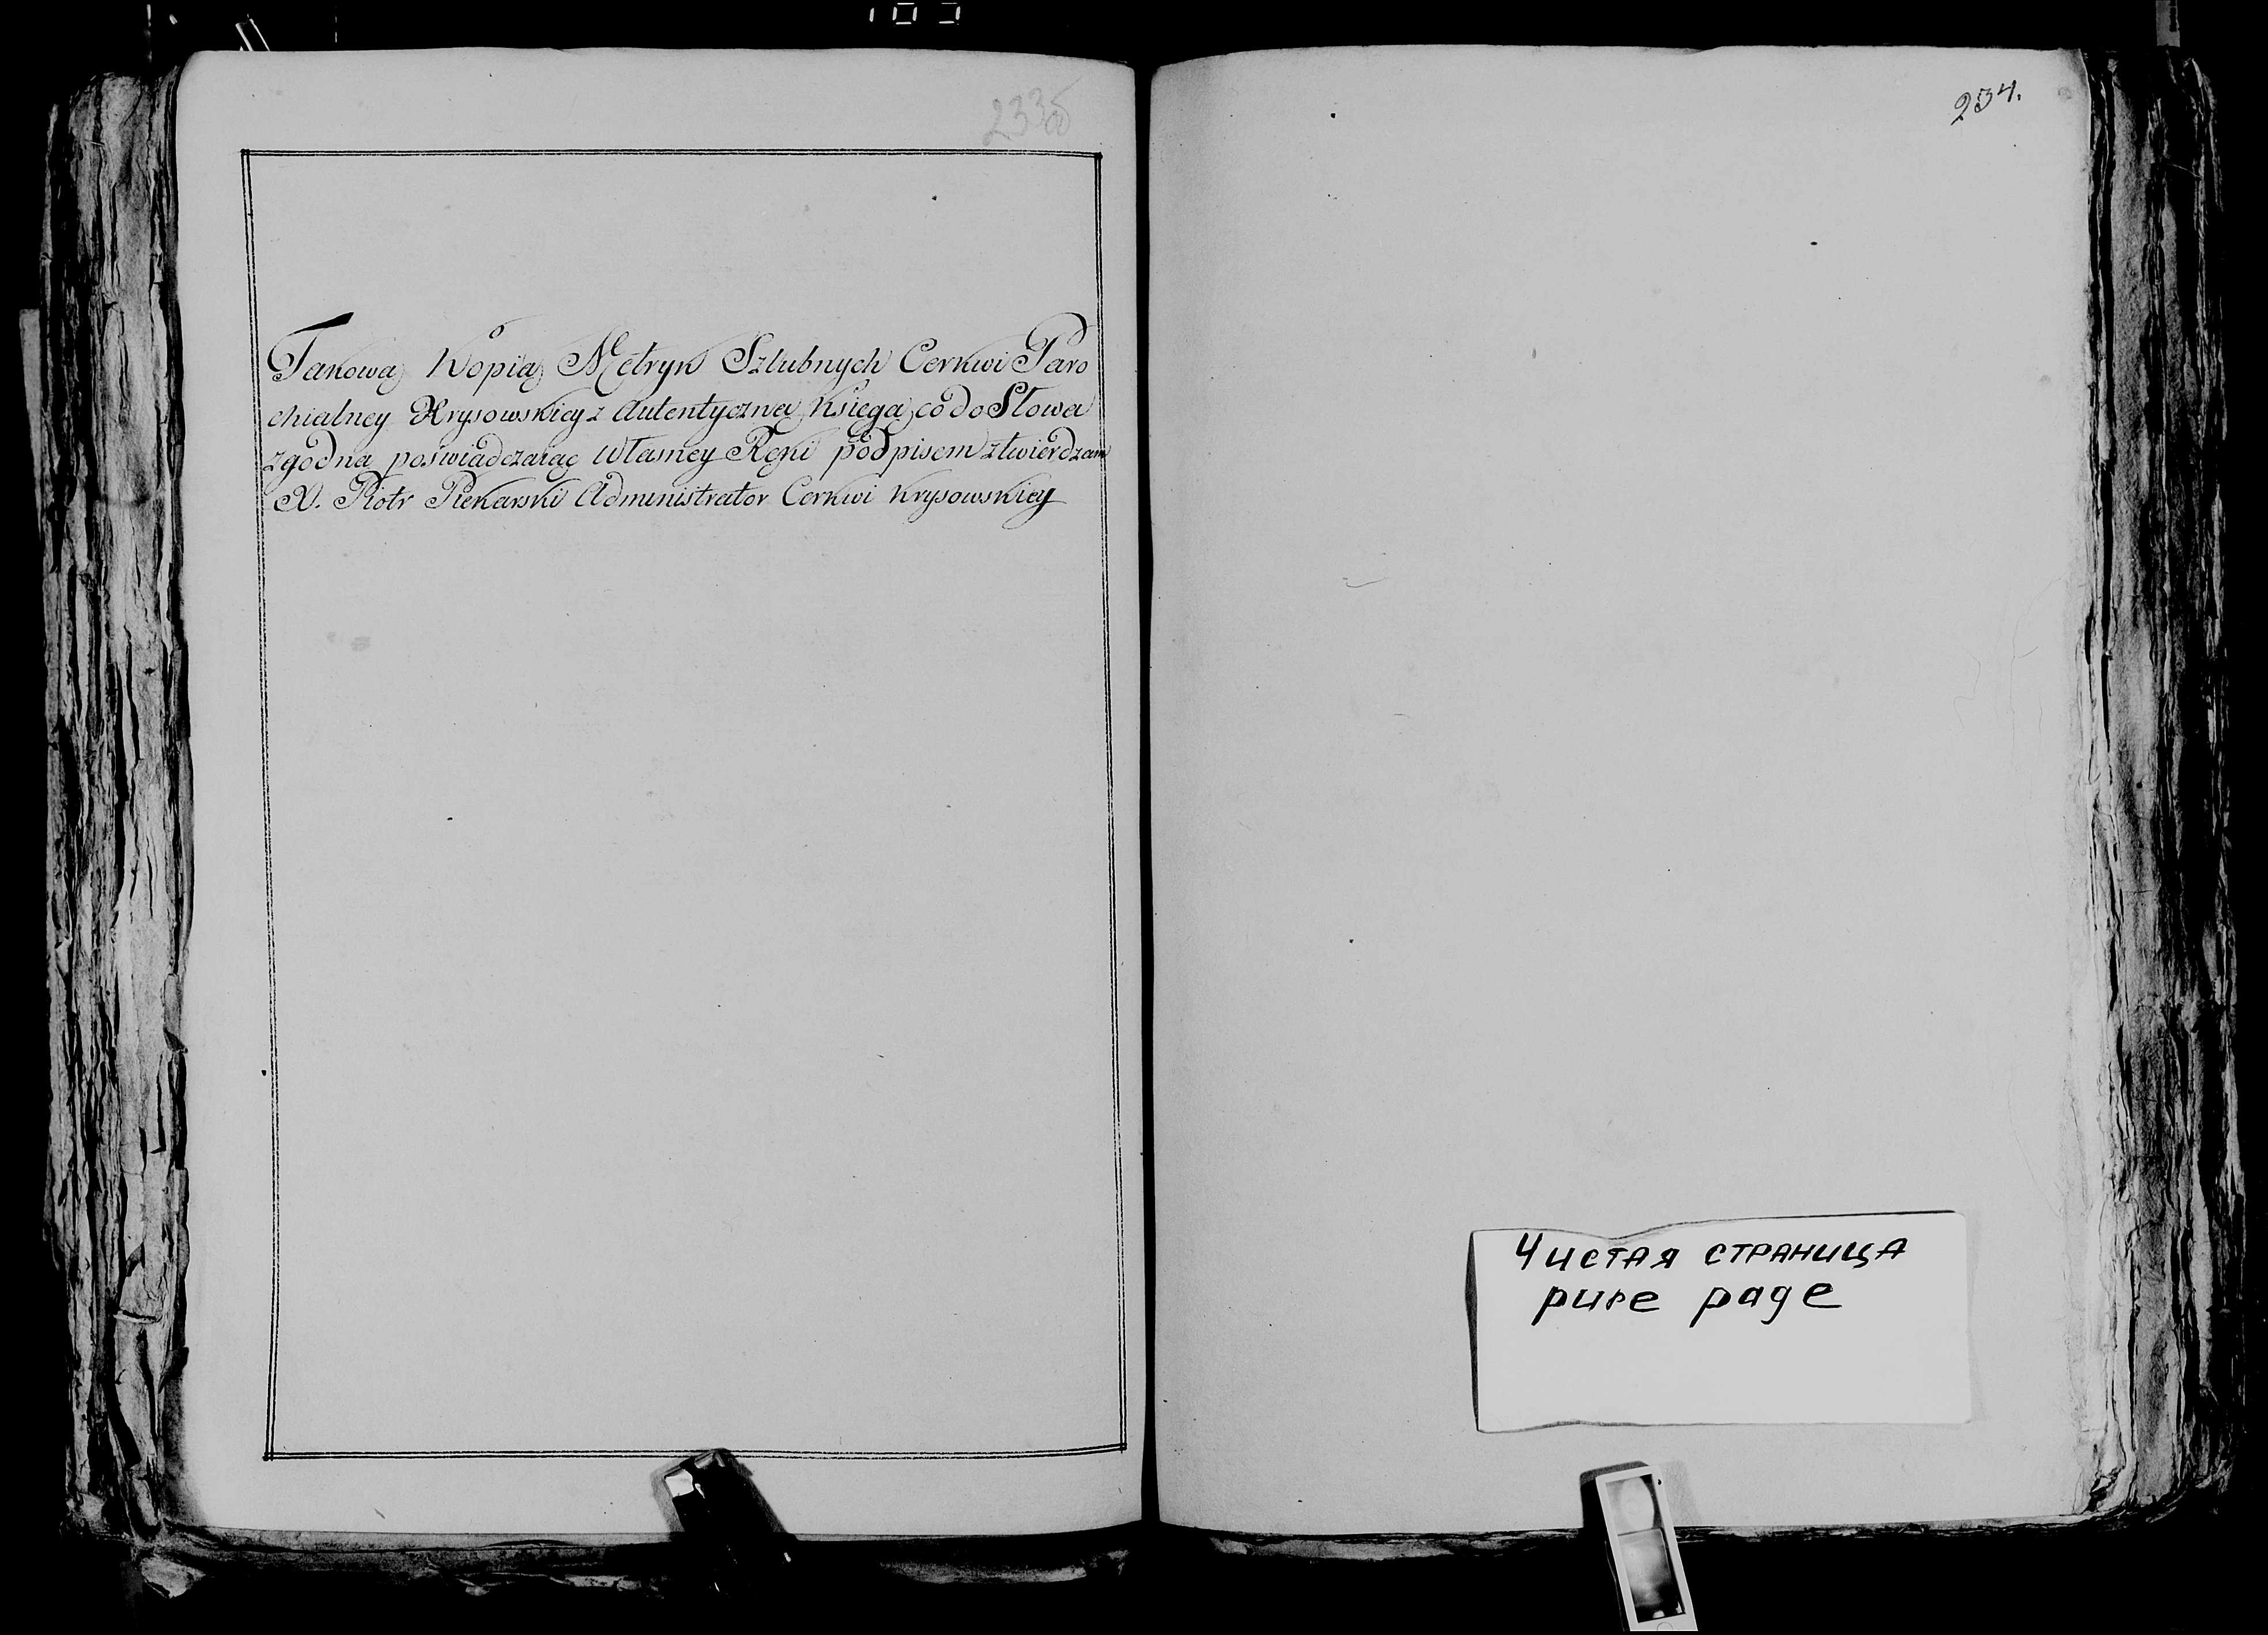 233 об
Takową Kopią Metryk Szlubnych Cerkwi Paro
chialney Krysowskiey z Autentyczną Księgą co do Słowa
zgodną poswiadczaiąc Własney Ręki podpisem ztwierdzam
X. Piotr Piekarski Administrator Cerkwi Krysowskiey
234.
Чистая страница
pure page